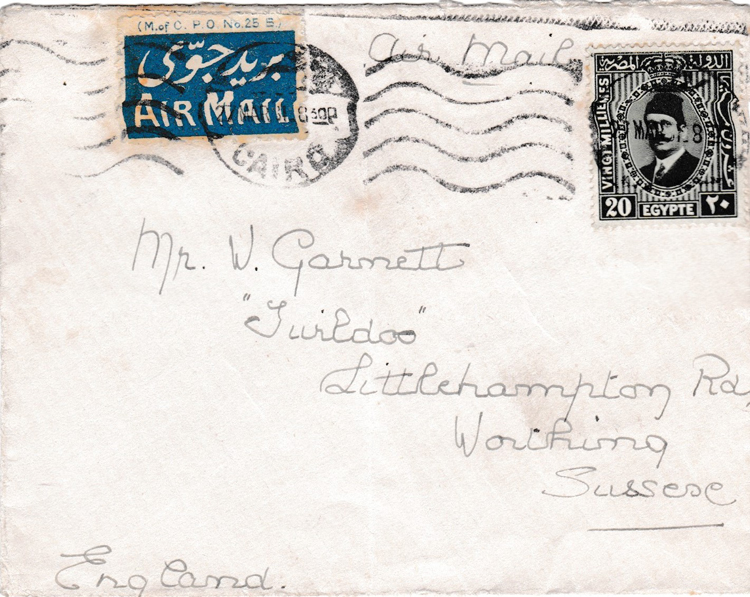 (M. of C. P. O. No. 25 S.)
بريد جوّي
AIR MAIL
CAIRO
Air Mail
الدولة المصرية
VINGT MILLIEMES
عشرون
20 EGYPTE ٢٠
Mr. W. Garnett
"Turldoo"
Littlehampton Rd,
Worthing
Sussex
England.